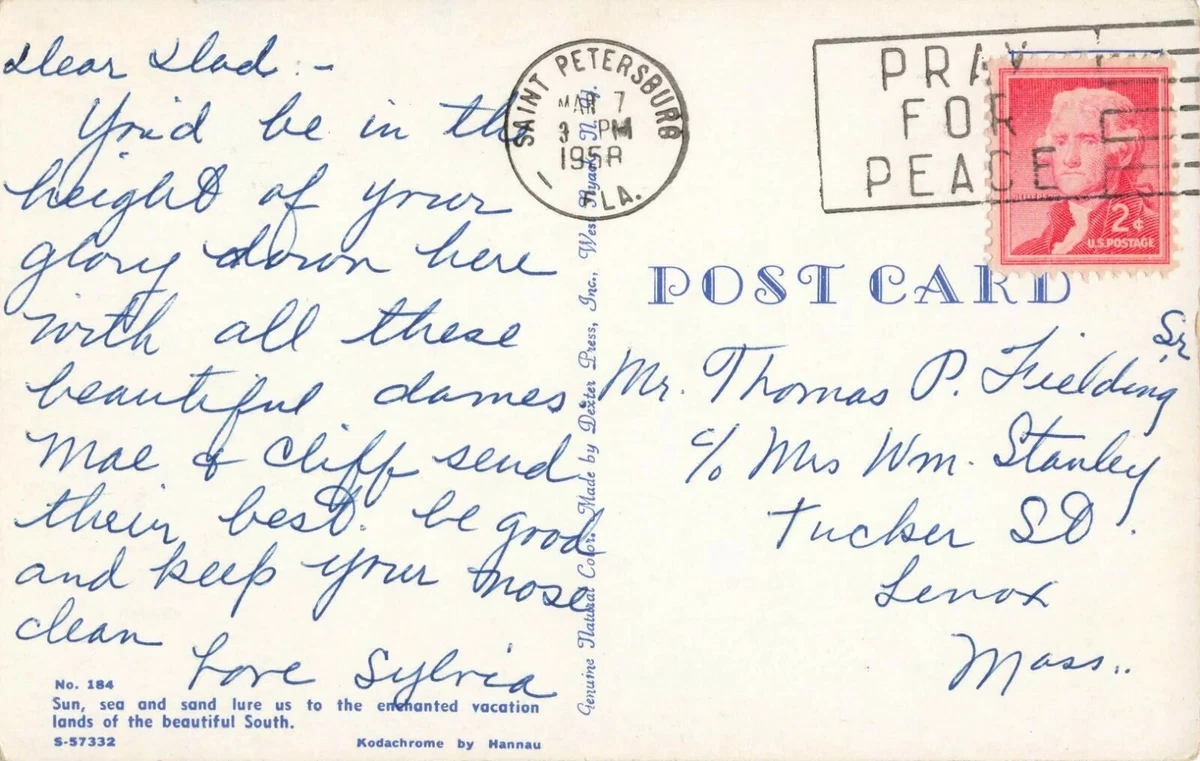 Dear Dad : -
You'd be in the
height of your
glory down here
with all these
beautiful dames
Mae & Cliff send
their best. be good
and keep your nose
clean
Love Sylvia
No. 184
Sun, sea and sand lure us to the enchanted vacation
lands of the beautiful South.
S-57332
Kodachrome by Hannau
Genuine Natural Color. Made by Dexter Press, Inc., West Nyack, N. Y.
SAINT PETERSBURG
MAR 7
3 PM
1958
FLA.
PRAY
FOR
PEACE
2¢
U.S. POSTAGE
POST CARD
Mr. Thomas P. Fielding Sr
c/o Mrs Wm. Stanley
Tucker St.
Lenox
Mass..